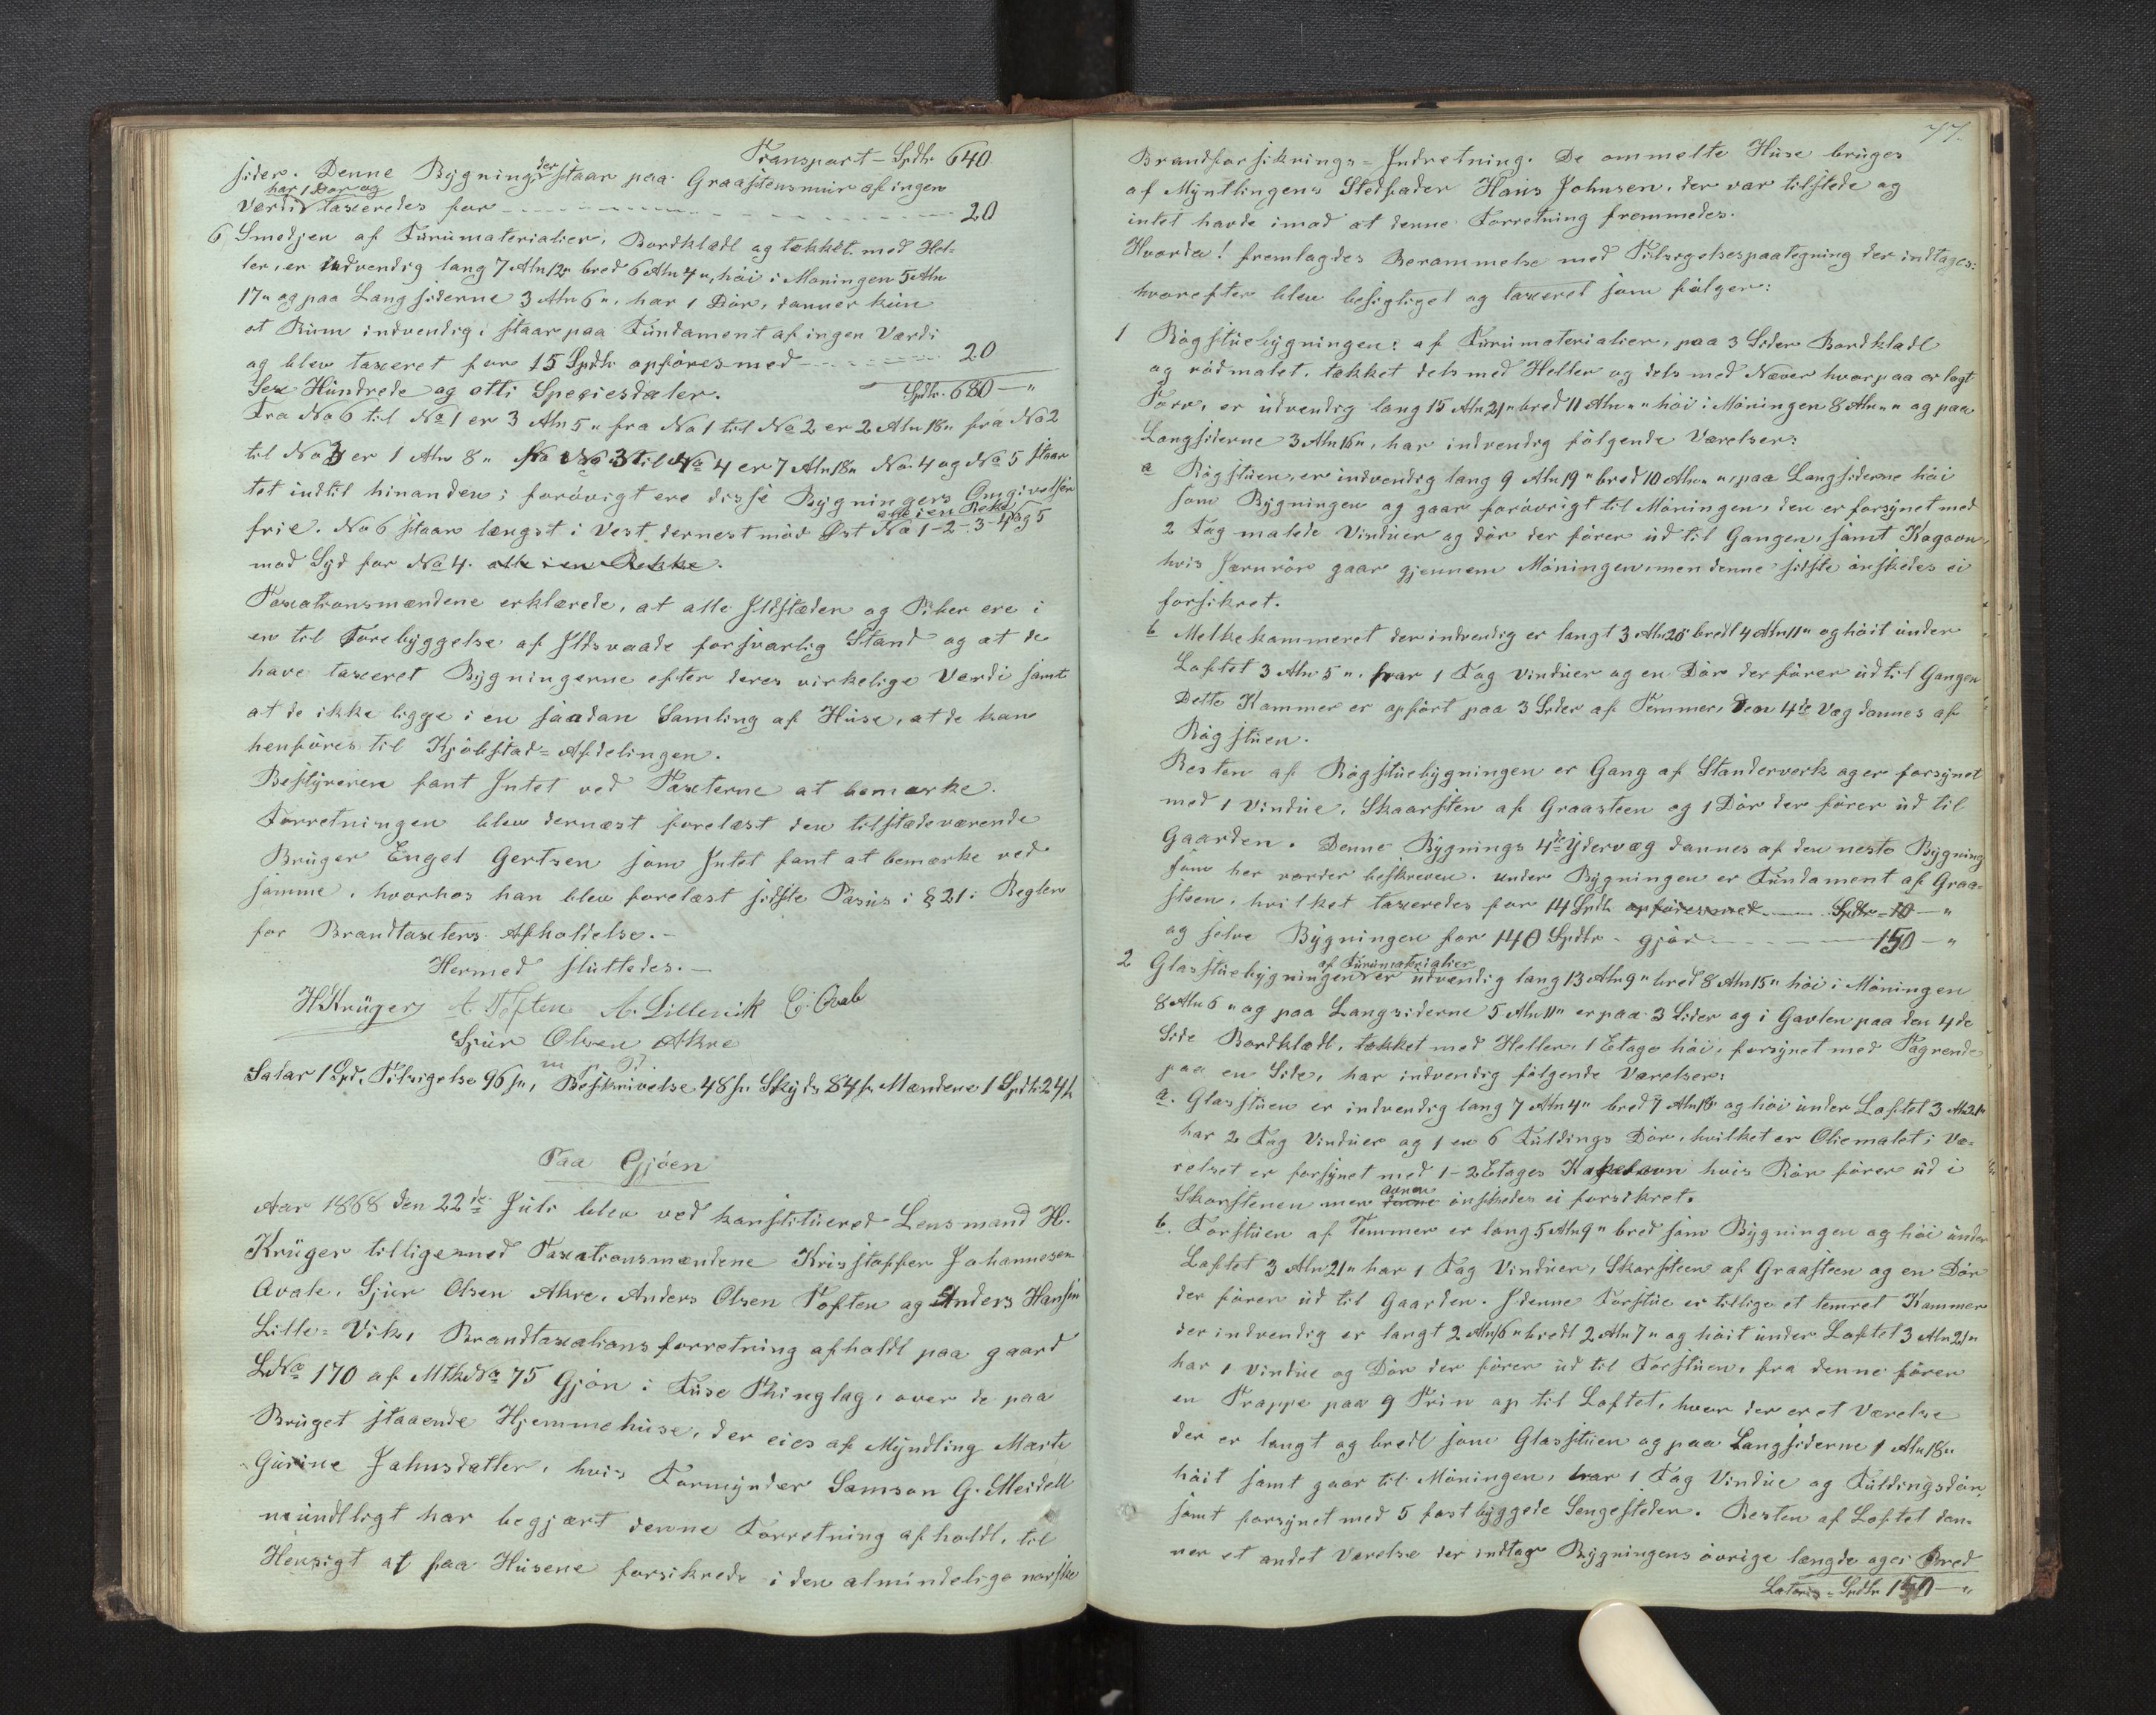 Transport - Spdlr 640
sider. Denne Bygning, der staar paa Graastensmur af ingen
Værdi har 1 Dør og taxeredes for - - - 20
6 Smedjen af Furumaterialier, Bordklædt og tækket med Hel-
ler, er udvendig lang 7 Aln 12" bred 6 Aln 4", høi i Møningen 5 Aln
17" og paa Langsiderne 3 Aln 6", har 1 Dør, danner kun
et Rum indvendig, staar paa Fundament af ingen Værdi
og blev taxeret for 15 Spdlr opføres med - - - 20
Sex Hundrede og otti Speciesdaler. Spdlr. 680 — "
Fra No 6 til No 1 er 3 Aln 5" fra No 1 til No 2 er 2 Aln 18" fra No 2
til No 3 er 1 Aln 8" fra No 3 til No 4 er 7 Aln 18" No 4 og No 5 staar
tæt indtil hinanden; forøvrigt ere disse Bygningers Omgivelser
frie. No 6 staar længst i Vest dernest mod Øst No 1-2-3-4 alle i en Rekke og 5
mod Syd for No 4. alle i en Rekke.
Taxationsmændene erklærede, at alle Ildstæder og Piber ere i
en til Forebyggelse af Ildsvaade forsvarlig Stand og at de
have taxeret Bygningerne efter deres virkelige Værdi samt
at de ikke ligge i en saadan Samling af Huse, at de kan
henføres til Kjøbstad-Afdelingen.
Bestyreren fant Intet ved Taxterne at bemærke.
Forretningen blev dernæst forelæst den tilstædeværende
Bruger Engel Gertsen som Intet fant at bemærke ved
samme, hvorhos han blev forelæst sidste Pasus i § 21 i Reglen
for Brandtaxters Afholdelse. -
Hermed sluttedes. -
H. Krüger A. Toften A. Lillevik C. Ovale
Sjur Olsen Akre
m p P.
Salar 1 Spd, Tilsigelse 96 s, Beskrivelse 48 s Skyds 84 s Mændene 1 Spdlr 24 s
Paa Gjøen
Aar 1868 den 22de Juli blev ved konstitueret Lensmand H.
Krüger tilligemed Taxationsmændene Kristoffer Johannesen
Ovale, Sjur Olsen Akre, Anders Olsen Toften og Anders Hansen
Lille-Vik, Brandtaxationsforretning afholdt paa gaard
LNo 170 af MtkNo 75 Gjøn i Fuse Thinglag, over de paa
Bruget staaende Hjemmehuse, der eies af Myndling Marte
Gurine Johnsdatter, hvis Formynder Samson G. Meidell
mundtligt har begjært denne Forretning afholdt, til
Hensigt at faa Husene forsikrede i den almindelige norske
77.
Brandforsikrings-Indretning. De ommelte Huse bruges
af Myntlingens Stedfader Hans Johnsen, der var tilstede og
intet havde imod at denne Forretning fremmedes.
Hvorda! fremlagdes Berammelse med Tilsigelsespaategning der indtages:
hvorefter blev besigtiget og taxeret som følger:
1 Røgstuebygningen: af Furumaterialier, paa 3 Sider Bordklædt
og rødmalet, tækket dels med Heller og dels med Næver hvorpaa er lagt
Torv, er udvendig lang 15 Aln 21" bred 11 Aln " " høi i Møningen 8 Aln " " og paa
Langsiderne 3 Aln 16", har indvendig følgende Værelser:
a Røgstuen, er indvendig lang 9 Aln 19" bred 10 Aln " ", paa Langsiderne høi
som Bygningen og gaar forøvrigt til Møningen, den er forsynet med
2 Fag malede Vinduer og dør der fører ud til Gangen, samt Kogeovn,
hvis Jærnrør gaar gjennem Møningen, men denne sidste ønskedes ei
forsikret.
b Melkekammeret der indvendig er langt 3 Aln 20" bredt 4 Aln 11" og høit under
Loftet 3 Aln 5", har 1 Fag Vinduer og en Dør der fører ud til Gangen
Dette Kammer er opført paa 3 Sider af Temmer, den 4de Væg dannes af
Røgstuen.
Resten af Røgstuebygningen er Gang af Standerverk og er forsynet
med 1 Vindue, Skaarsten af Graasteen og 1 Dør der fører ud til
Gaarden. Denne Bygnings 4de Ydervæg dannes af den neste Bygning
som her vorder beskreven. Under Bygningen er Fundament af Graa-
steen, hvilket taxeredes for 14 Spdlr opføres med - - Spdlr - 10 — "
og selve Bygningen for 140 Spdlr - gjør - - - 150 — "
2 Glasstuebygningen af Furumaterialier er udvendig lang 13 Aln 9" bred 8 Aln 15" høi i Møningen
8 Aln 6" og paa Langsiderne 5 Aln 11" er paa 3 Sider og i Gavlen paa den 4de
Side Bordklædt, tækket med Heller, 1 Etage høi, forsynet med Tagrende
paa en Side, har indvendig følgende Værelser:
a. Glasstuen er indvendig lang 7 Aln 4" bred 7 Aln 18" og høi under Loftet 3 Aln 21"
har 2 Fag Vinduer og 1 en 6 Fuldings Dør, hvilket er Oliemalet; Væ-
relset er forsynet med 1 - 2 Etages Kakelovn hvis Rør fører ud i
Skorstenen men denne ovnen ønskedes ei forsikret.
b. Forstuen af Temmer er lang 5 Aln 9" bred som Bygningen og høi under
Loftet 3 Aln 21" har 1 Fag Vinduer, Skorsteen af Graasteen og en Dør
der fører ud til Gaarden. I denne Forstue er tillige et temret Kammer
der indvendig er langt 2 Aln 16" bredt 2 Aln 7" og høit under Loftet 3 Aln 21"
har 1 Vindue og Dør der fører ud til Forstuen, fra denne fører
en Trappe paa 9 Trin op til Loftet, hvor der er et Værelse
der er langt og bredt som Glasstuen og paa Langsiderne 1 Aln 18"
høit samt gaar til Møningen, har 1 Fag Vindue og Fuldingsdør,
samt forsynet med 5 fast byggede Sengesteder. Resten af Loftet dan-
ner et andet Værelse der indtar Bygningens øvrige længde og i Bred
Lateris - Spdlr 150 — "